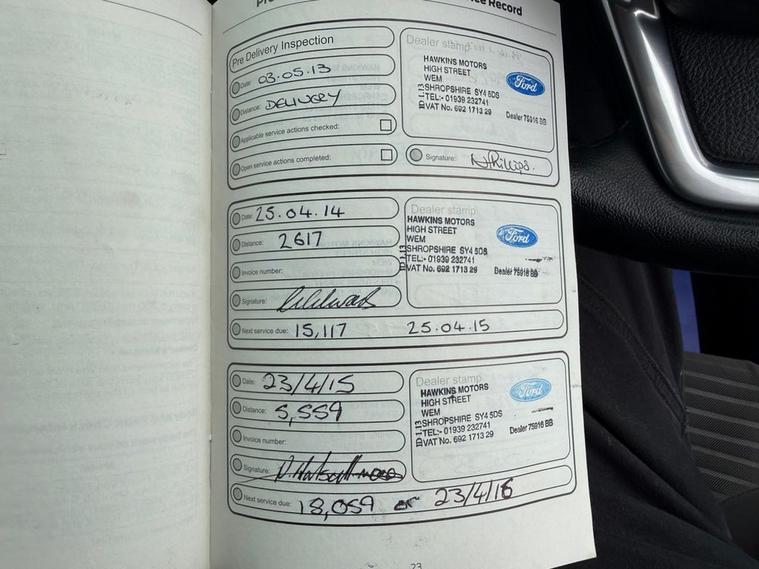 Record
Pre Delivery Inspection
Date: 03.05.13
Distance: DELIVERY
Applicable service actions checked:
Open service actions completed:
Dealer stamp
HAWKINS MOTORS
HIGH STREET
WEM
SHROPSHIRE SY4 5DS
TEL:- 01939 232741
VAT No. 692 1713 29
Ford
Dealer 75916 BB
Signature: N Phillips.
Date: 25.04.14
Distance: 2617
Invoice number:
Signature:
Next service due: 15,117 25.04.15
Dealer stamp
HAWKINS MOTORS
HIGH STREET
WEM
SHROPSHIRE SY4 5DS
TEL:- 01939 232741
VAT No. 692 1713 29
Ford
Dealer 75916 BB
Date: 23/4/15
Distance: 5,559
Invoice number:
Signature:
Next service due: 18,059 or 23/4/16
Dealer stamp
HAWKINS MOTORS
HIGH STREET
WEM
SHROPSHIRE SY4 5DS
TEL:- 01939 232741
VAT No. 692 1713 29
Ford
Dealer 75916 BB
23